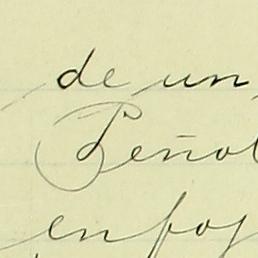 de un
Peño
en fo